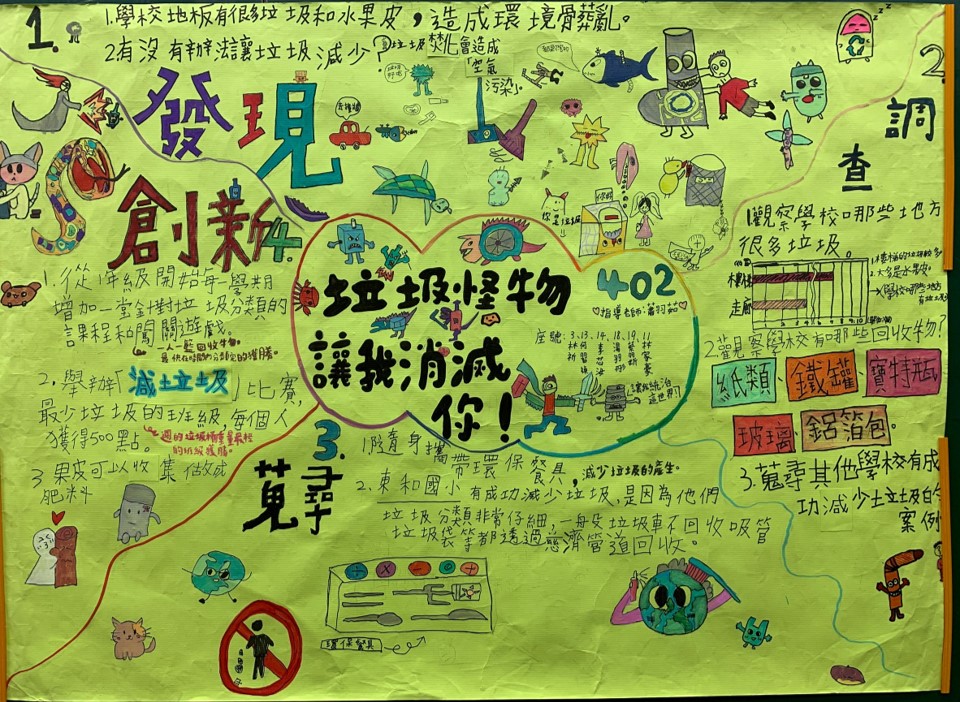 1.
1.學校地板有很多垃圾和水果皮，造成環境骨葬亂。
2.有沒有辦法讓垃圾減少？
垃圾焚化會造成
「空氣
污染」。
發現
2.
調查
1觀察學校哪些地方
很多垃圾。
走廊
2.觀察學校有哪些回收物?
紙類、鐵罐、寶特瓶
玻璃、鋁箔包。
3.蒐尋其他學校有成
功減少土垃圾的
案例
垃圾怪物
讓我消滅
你！
402
指導老師:
座號:
3.
蒐尋
1.隨身攜帶環保餐具，減少垃圾的產生。
2.東和國小有成功減少垃圾，是因為他們
垃圾分類非常仔細，一般垃圾車不回收吸管
垃圾袋等都透過慈濟管道回收。
環保餐具
創新
4.
1.從1年級開始每一學期
增加一堂針對垃圾分類的
課程和闖關遊戲。
2.舉辦「減土垃圾」比賽，
最少垃圾的班級，每個人
獲得500點。
一週的垃圾桶重量最輕
的班級獲勝。
3果皮可以收集做成
肥料